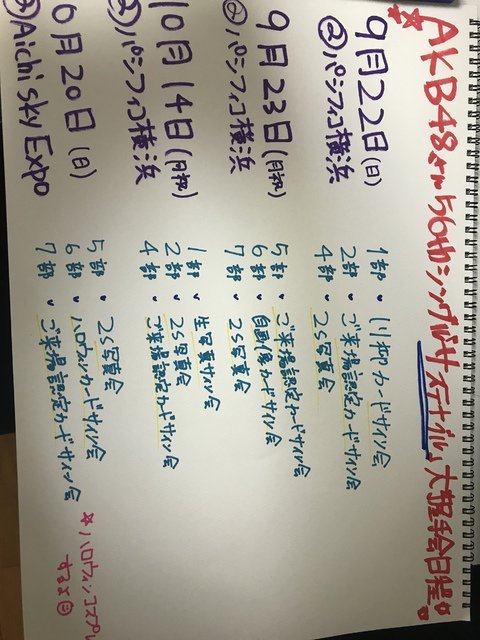 AKB48さん56thシングル「サステナブル」大握手会日程
9月22日(日)
@パシフィコ横浜
1部・川柳カードサイン会
2部・ご来場認定カードサイン会
4部・2S写真会
9月23日(月祝)
@パシフィコ横浜
5部・ご来場認定カードサイン会
6部・自画像カードサイン会
7部・2S写真会
10月14日(月祝)
@パシフィコ横浜
1部・生写真サイン会
2部・2S写真会
4部・ご来場認定カードサイン会
0月20日(日)
@Aichi sky Expo
5部・2S写真会
6部・ハロウィンカードサイン会
7部・ご来場認定カードサイン会
☆ハロウィンコスプレ
するよ